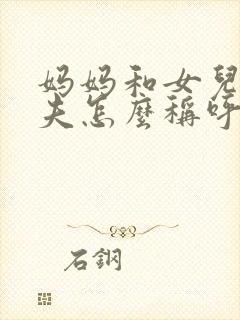 妈妈和女兒
夫怎麼稱呼
石鋼